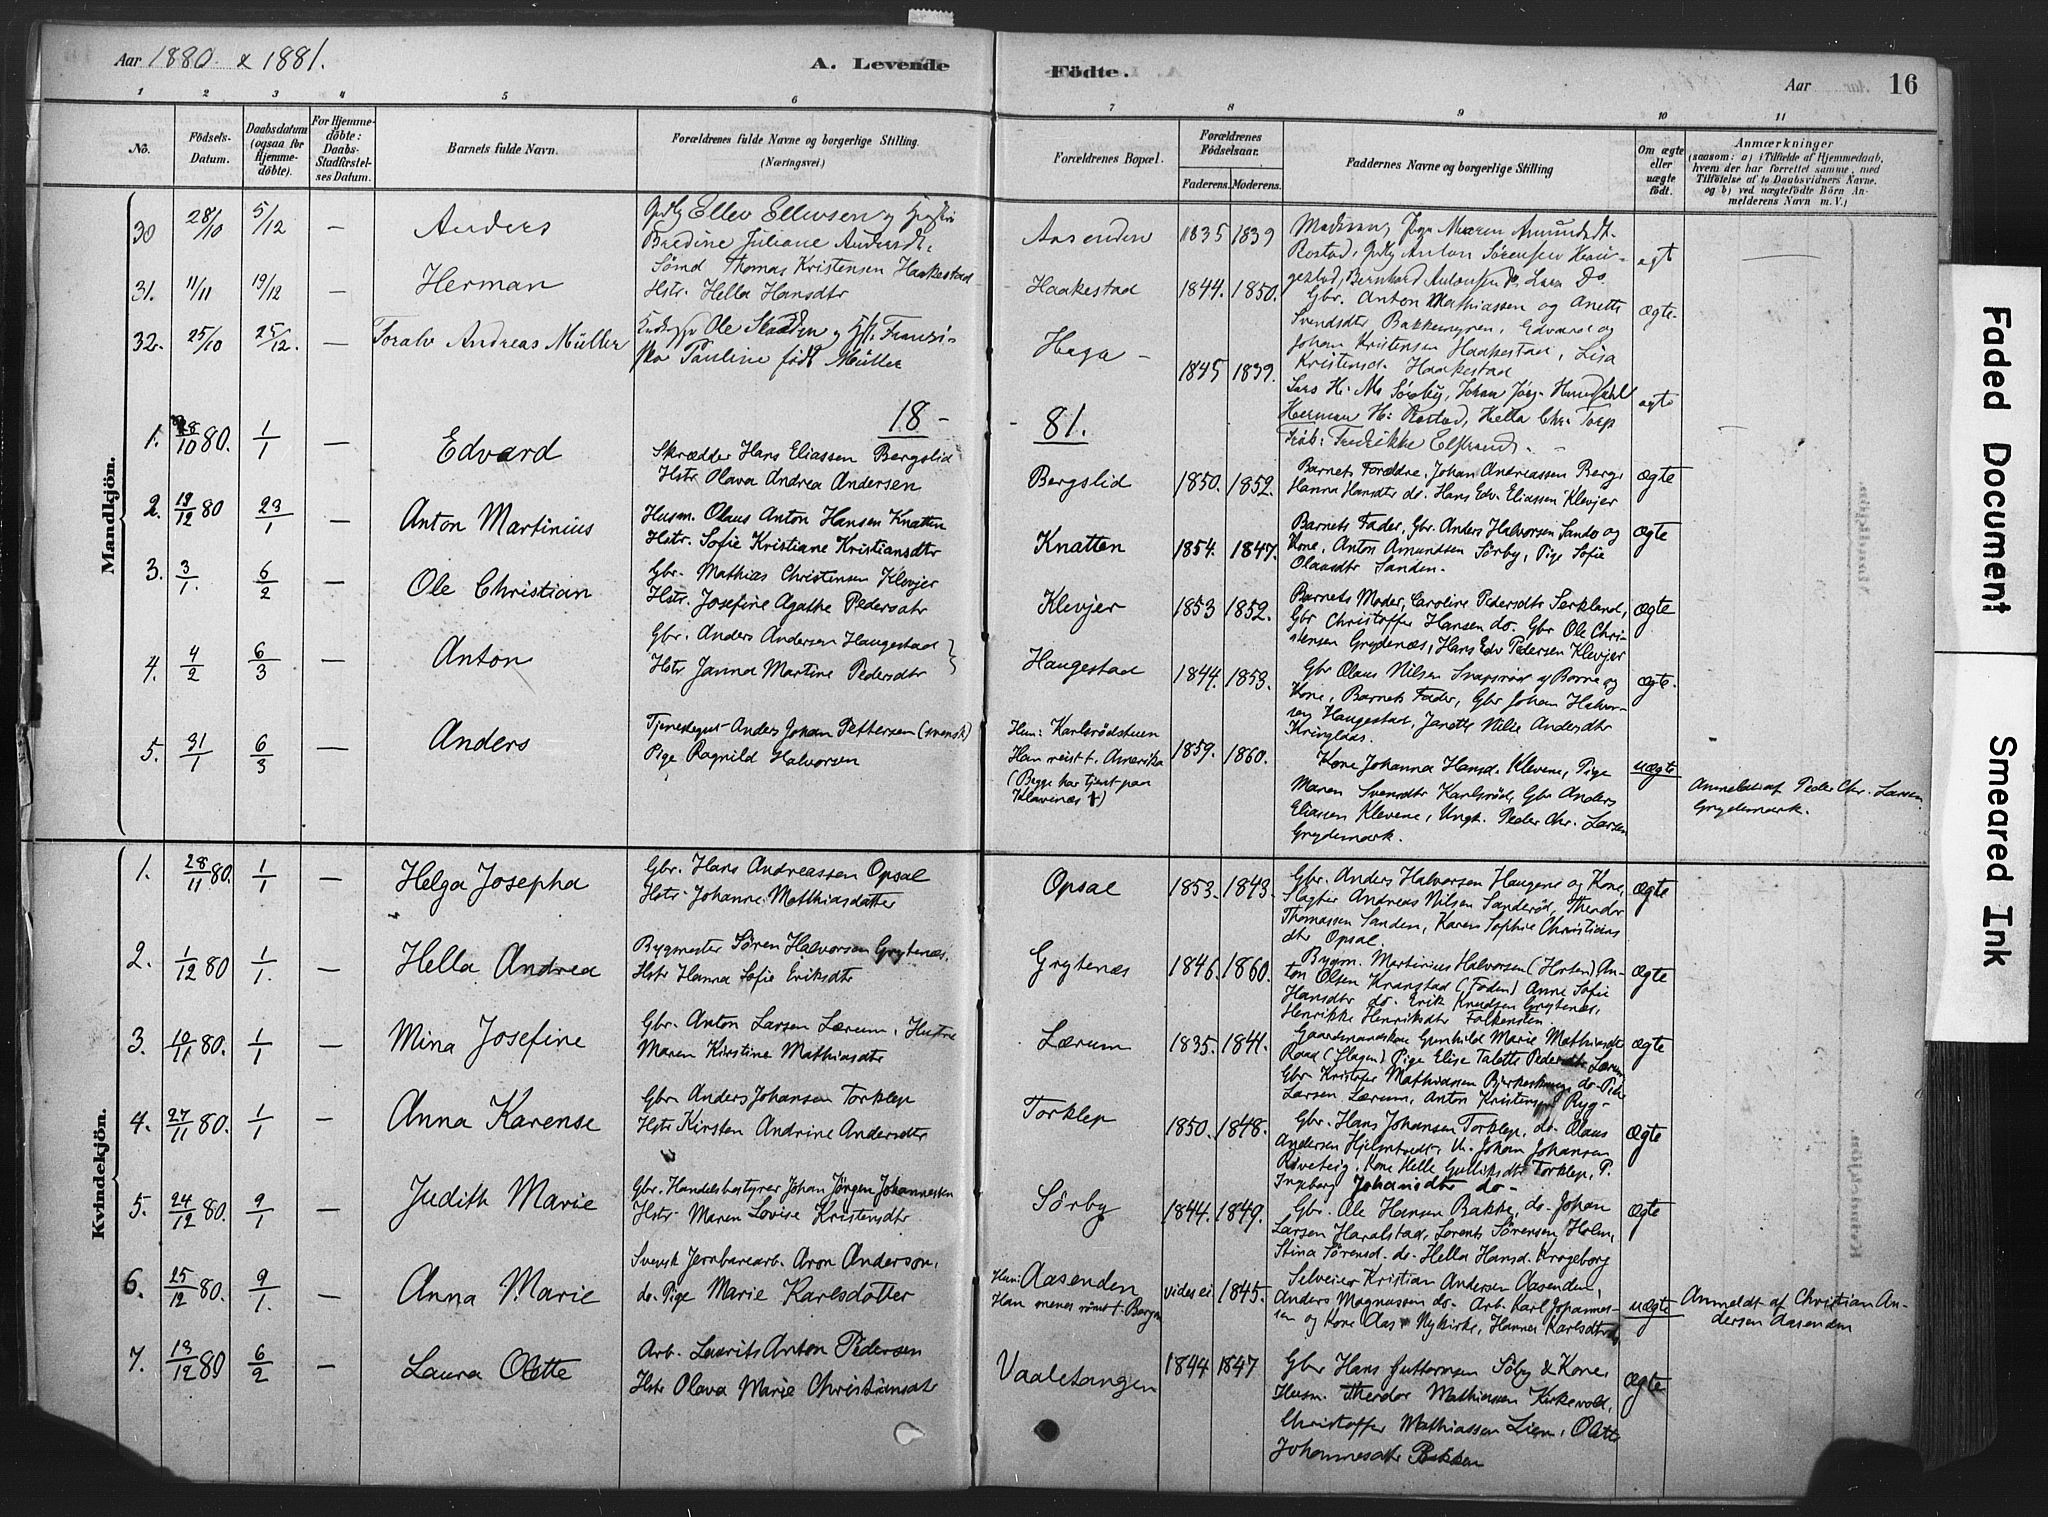 Aar 1880 & 1881.
A. Levende
Födte.
Aar
16
1 2 3 4 5 6 7 8 9 10 11
No.
Födsels-
Datum.
Daabsdatum
(ogsaa for
Hjemme-
døbte).
For Hjemme-
döbte:
Daabs-
Stadfæstel-
ses Datum.
Barnets fulde Navn.
Forældrenes fulde Navne og borgerlige Stilling.
(Næringsvei)
Forældrenes Bopæl.
Forældrenes
Födselsaar.
Faderens. Moderens.
Faddernes Navne og borgerlige Stilling
Om ægte
eller
uægte
födt.
Anmærkninger
(saasom: a) i Tilfælde af Hjemmedaab,
hvem der har forrettet samme, med
Tilföielse af to Daabsvidners Navne,
og b) ved uægtefödte Börn An-
melderens Navn m. V.)
Mandkjön.
30 28/10 5/12 — Anders
Ellev Ellevsen
Bredine Juliane Andersdt.
Aasenden 1835 1839
Pige Maren Amundsdt.
Rostad, Anton Sörensen Hau-
gestad, Bernhard Antonsen
31. 11/11 19/12 — Herman
Sömd Thomas Kristensen Haakestad
Hstr. Hella Hansdtr
Haakestad 1844. 1850.
Gbr. Anton Mathiassen og Anette
Svendsdtr Bakkemyren, Edvard og
Johan Kristensen Haakestad, Lisa
Kristensd. Haakestad
ægte.
32. 25/10 25/12. — Toralv Andreas Müller
Ole Pauline född Müller
Haga — 1845 1839.
Hella Chr. Torp
Fredrikke Elstrand.
ægte
18 — 81.
1. 28/10 80. 1/1 — Edvard
Skrædder Hans Eliassen Bergslid
Hstr Olava Andrea Andersen
Bergslid 1850. 1852.
Barnets Forældre, Johan Andreassen Berg,
Hanna Hansdtr do. Hans Edv. Eliassen Klevjer
ægte
2. 19/12 80 23/1 — Anton Martinius
Husm. Olaus Anton Hansen Knatten
Hstr. Sofie Kristiane Kristiansdtr
Knatten 1854. 1847.
Barnets Fader, Gbr. Anders Halvorsen Sando og
Kone, Anton Amundsen Sörby, Pige Sofie
Olausdtr Sanden.
ægte
3. 3/1. 6/2 — Ole Christian
Gbr. Mathias Christensen Klevjer
Hstr. Josefine Agathe Pedersdtr
Klevjer 1853 1852.
Barnets Moder, Caroline Pedersdtr Serkland,
Gbr Christoffer Hansen do. Gbr Ole Chri-
stensen Grydenæs, Hans Edv Pedersen Klevjer
ægte
4. 4/2 6/3 — Anton
Gbr. Anders Andersen Haugestad
Hstr Janna Martine Pedersdtr
Haugestad 1844. 1853.
Gbr Olaus Nilsen Snapsröd af Borre og
Kone, Barnets Fader, Gbr Johan Halvor-
sen Haugestad, Janette Nilie Andersdtr
Kringlaas.
ægte.
5. 31/1 6/3 — Anders
Tjenestegut Anders Johan Pettersen (svensk)
Pige Ragnild Halvorsen
Hun: Karlsrödstuen
Han reist t. Amerika
(Begge har tjent paa
Klavenæs )
1859. 1860.
Kone Johanna Hansd. Klevene, Pige
Maren Svensdtr Karlsröd, Gbr Anders
Eliassen Klevene, Ungk. Peder Chr. Larsen
Grydemark.
uægte
Anmeldt af Peder Chr. Larsen
Grydemark.
Kvindekjön.
1. 28/11 80. 1/1 — Helga Josepha
Gbr. Hans Andreassen Opsal
Hstr Johanne Matthiasdatter
Opsal 1853. 1843.
Gbr. Anders Halvorsen Haugene og Kone,
Slagter Andreas Nilsen Sanderöd, Theodor
Thomassen Sanden, Karen Sophie Christians
dtr Opsal.
ægte
2. 1/12 80 1/1. — Hella Andrea
Bygmester Sören Halvorsen Grytenæs.
Hstr Hanna Sofie Eriksdtr
Grytenæs 1846. 1860.
Bygm. Martinius Halvorsen (Horten) An-
ton Olsen Kranstad (Foden) Anne Sofie
Hansdtr do. Erik Knudsen Grytenæs,
Henrikke Henriksdtr Falkensten.
ægte
3. 10/11 80. 1/1 — Mina Josefine
Gbr. Anton Larsen Lærum, Hustru
Maren Kirstine Mathiasdtr
Lærum 1835. 1841.
Gaardmandskone Gunhild Marie Mathiasdtr
Raaa (Slagen) Pige Elise Talette Pedersdtr Lærum
Gbr Kristofer Mathiassen
Larsen Lærum, Anton
ægte
4. 27/11 80. 1/1 — Anna Karense
Gbr Anders Johansen Torklep
Hstr Kirsten Andrine Andersdtr
Torklep 1850. 1848.
Gbr. Hans Johansen Torklep, do. Olaus
Andersen Hjelmtvedt, U. Johan Johansen
Röveteig, Kone Helle Gulliksdtr Torklep, P.
Ingeborg Johansdtr do-
ægte
5. 24/12 80. 9/1 — Judith Marie
Gbr. Handelsbestyrer Johan Jörgen Johannessen
Hstr. Maren Lovise Kristensdtr
Sörby 1844. 1849.
Gbr. Ole Hansen Bakke, do. Johan
Larsen Haralstad, Lorents Sörensen Holm,
Stina Sörensd. do. Hella Hansd. Krogeborg
ægte
6. 25/12 80. 9/1. — Anna Marie
Svensk Jernbanearb. Aron Anderson,
do. Pige Marie Karlsdotter
Hun: Aasenden
Han menes römt t. Bergen
vides ei 1845.
Selveier Kristian Andersen Aasenden,
Anders Magnussen do. Arb. Karl Johannes-
sen og Kone Aas Nykirke, Hanna Karlsdtr do
uægte
Anmeldt af Christian An-
dersen Aasenden
7. 13/12 80 6/2 — Laura Olette
Arb. Laurits Anton Pedersen
Hstr Olava Marie Christiansdtr
Vaaletangen 1844 1847
Gbr Hans Guttormsen Söby & Kone,
Husm. Theodor Mathiassen Kirkevold,
Christoffer Mathiassen Lien, Olette
Johannesdtr Bakken
ægte
Faded Document
Smeared Ink